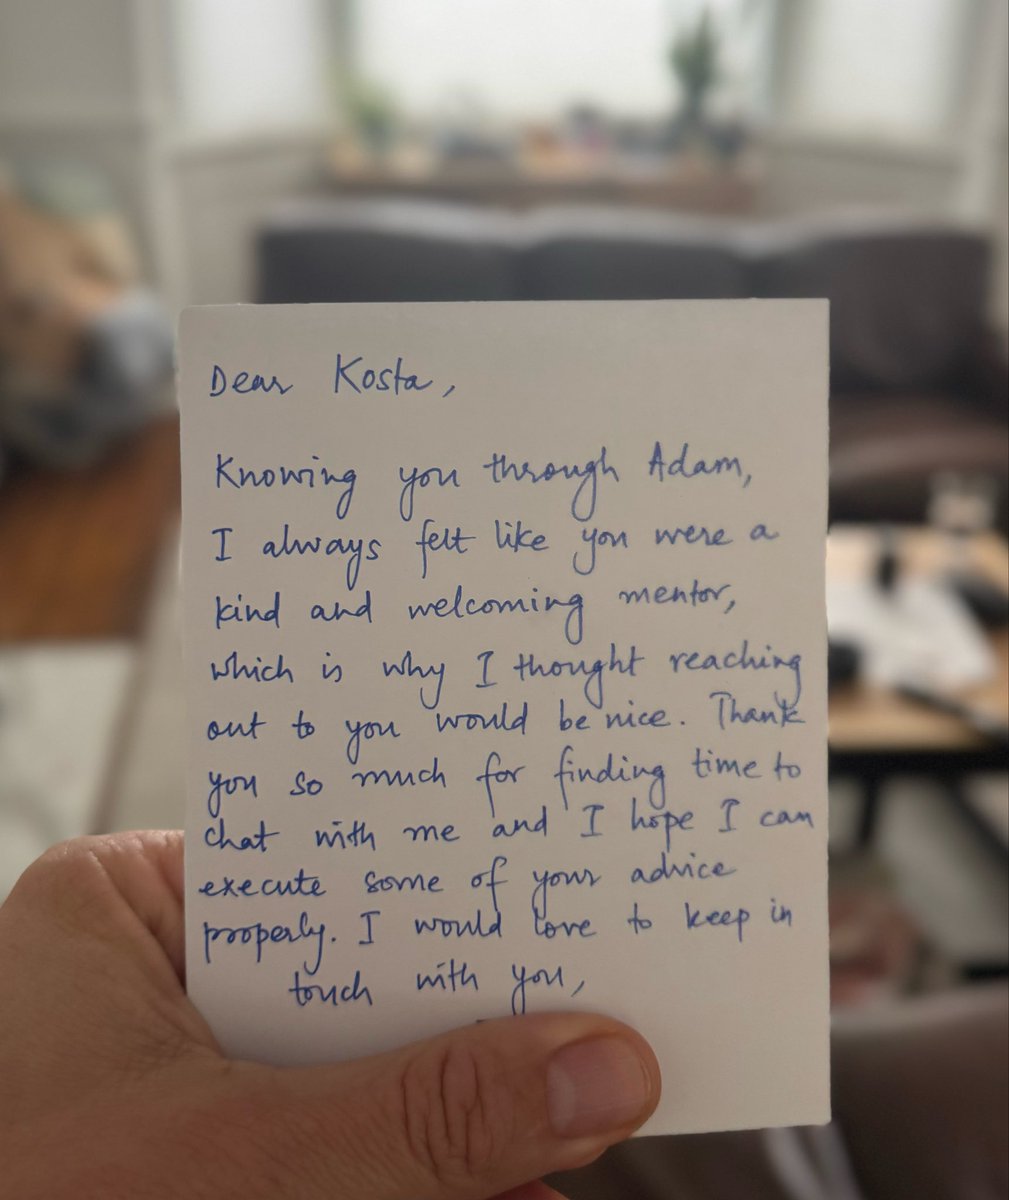 Dear Kosta,
Knowing you through Adam,
I always felt like you were a
kind and welcoming mentor,
which is why I thought reaching
out to you would be nice. Thank
you so much for finding time to
chat with me and I hope I can
execute some of your advice
properly. I would love to keep in
touch with you,